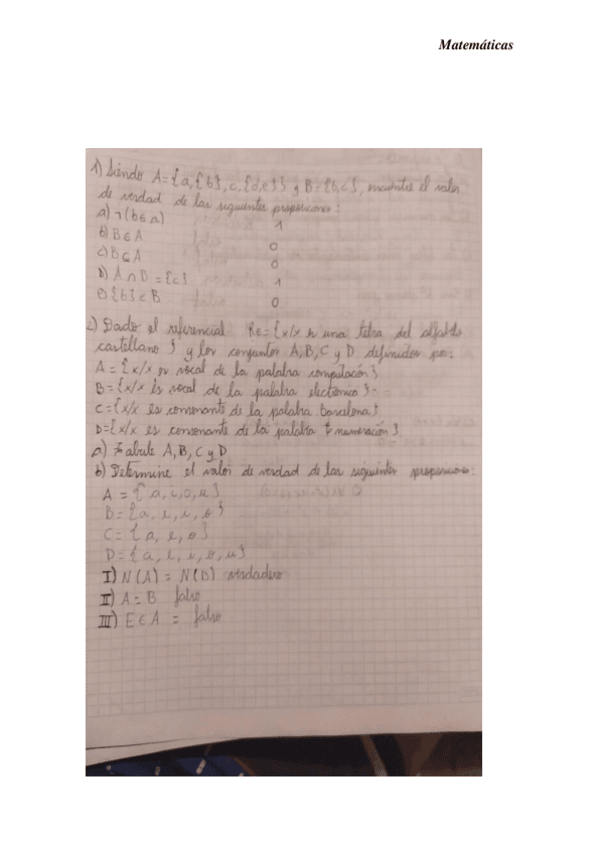 Matemáticas
1) Siendo A={a,{b},c,{d,e}} y B={b,c}, encuentre el valor
de verdad de las siguientes proposiciones:
a) ¬(b∈A) 1
b) B∈A 0
c) B⊆A 0
D) A∩B={c} 1
e) {b}∈B 0
2) Dado el referencial Re={x/x es una letra del alfabeto
castellano} y los conjuntos A,B,C y D definidos por:
A={x/x es vocal de la palabra computación}
B={x/x es vocal de la palabra electrónico}
C={x/x es consonante de la palabra barcelona}
D={x/x es consonante de la palabra numeración}
a) Tabule A,B,C y D
b) Determine el valor de verdad de las siguientes proposiciones:
A={a,i,o,u}
B={a,e,i,o}
C={a,e,o}
D={a,e,i,o,u}
I) N(A)=N(D) verdadero
II) A=B falso
III) E∈A = falso